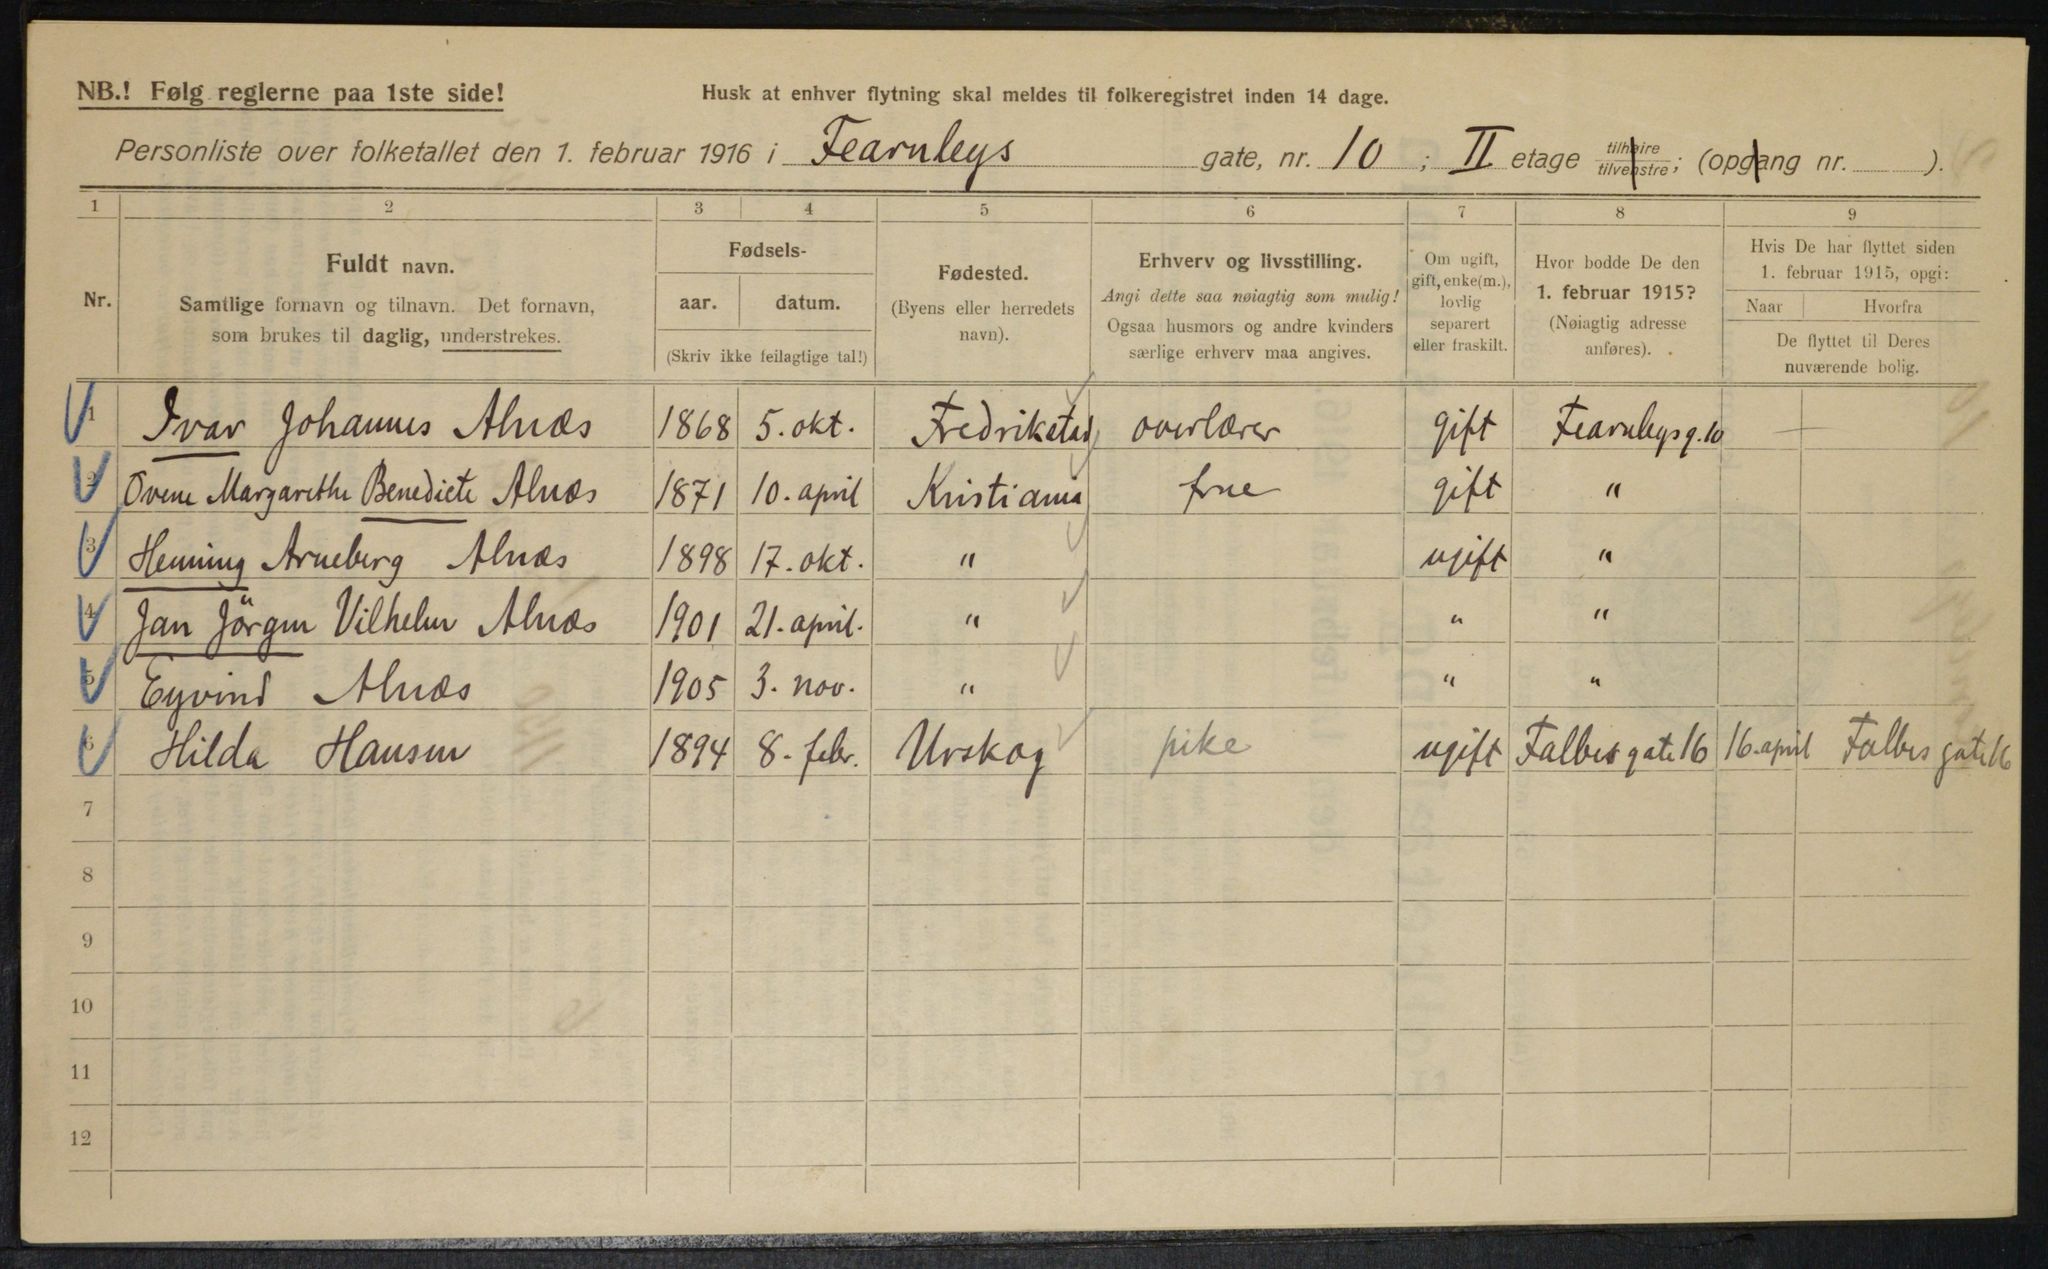 NB.! Følg reglerne paa 1ste side!
Husk at enhver flytning skal meldes til folkeregistret inden 14 dage.
Personliste over folketallet den 1. februar 1916 i Fearnleys gate, nr. 10 ; II etage tilhøire tilvenstre; (opgang nr. ).
1 2 3 4 5 6 7 8 9
Nr.
Fuldt navn.
Samtlige fornavn og tilnavn. Det fornavn,
som brukes til daglig, understrekes.
Fødsels-
aar. datum.
(Skriv ikke feilagtige tal!)
Fødested.
(Byens eller herredets
navn).
Erhverv og livsstilling.
Angi dette saa nøiagtig som mulig!
Ogsaa husmors og andre kvinders
særlige erhverv maa angives.
Om ugift,
gift, enke(m.),
lovlig
separert
eller fraskilt.
Hvor bodde De den
1. februar 1915?
(Nøiagtig adresse
anføres).
Hvis De har flyttet siden
1. februar 1915, opgi:
Naar Hvorfra
De flyttet til Deres
nuværende bolig.
1 Ivar Johannes Alnæs 1868 5. okt. Fredrikstad overlærer gift Fearnleysg. 10 —
2 Ovene Margarethe Benedicte Alnæs 1871 10. april Kristiania frue gift "
3 Henning Arneberg Alnæs 1898 17. okt. " ugift "
4 Jan Jörgen Vilhelm Alnæs 1901 21. april. " " "
5 Eyvind Alnæs 1905 3. nov. " " "
6 Hilda Hansen 1894 8. febr. Urskog pike ugift Falbes gate 16 16. april Falbes gate 16
7
8
9
10
11
12